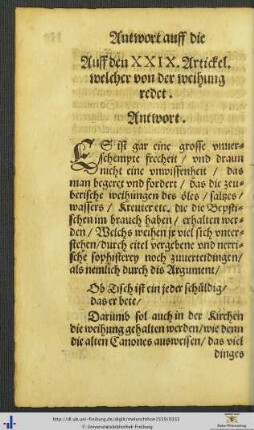 Antwort auff die
Auff den XXIX. Artickel.
welcher von der weihung
redet.
Antwort.
ES ist gar eine grosse vnuer-
schempte frecheit / vnd draun
nicht eine vnwissenheit / das
man begeret vnd fordert / das die zeu-
berische weihungen des öles / saltzes /
wassers / Kreuter etc. die die Bepsti-
schen im brauch haben / erhalten wer-
den / Welchs weihen jr viel sich vnter-
stehen / durch eitel vergebene vnd nerri-
sche sophisterey noch zuuerteidingen /
als nemlich durch dis Argument /
Ob Tisch ist ein jeder schüldig /
das er bete /
Darumb sol auch in der Kirchen
die weihung gehalten werden / wie denn
die alten Canones ausweisen / das viel
dinges
© Universitätsbibliothek Freiburg